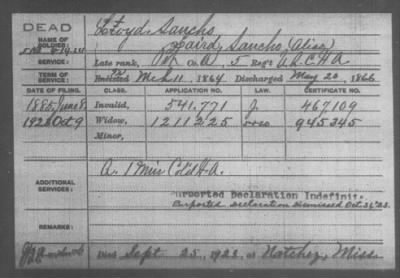 DEAD
Lloyd, Sancho
NAME OF SOLDIER:
Laird, Sancho, (Alias)
SERVICE:
Late rank, Co. A, 5 Reg't U.S.C.H.A.
TERM OF SERVICE:
Enlisted Mch 11, 1864 Discharged May 20, 1866
DATE OF FILING. CLASS. APPLICATION NO. LAW. CERTIFICATE NO.
1885, June 8. Invalid, 541.771 J. 467109
1923 Oct 9 Widow, 1211225 945345
Minor,
ADDITIONAL SERVICES:
A. 1 Miss Col'd H.A.
Purported Declaration Indefinite
Purported Declaration Dismissed Oct. 31, '23.
REMARKS:
Died Sept 25, 1923, at Natchez, Miss.